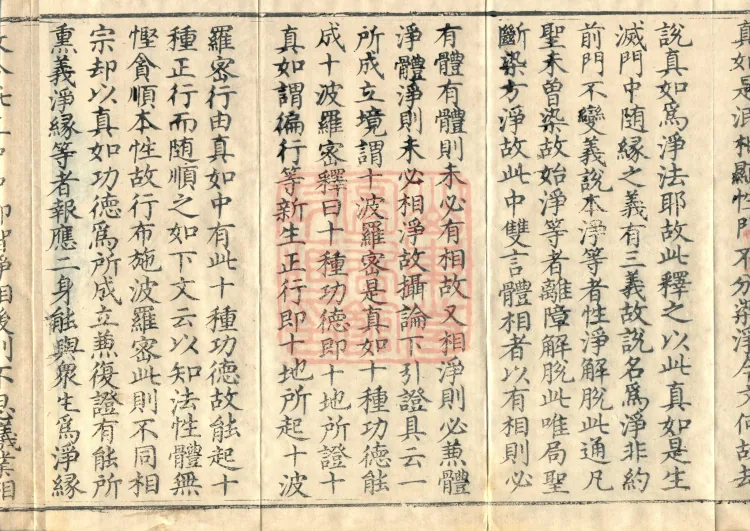 真如是泯相顯性門不分染淨今文何故去
說真如爲淨法耶故此釋之以此真如是生
滅門中随緣之義有三義故說名爲淨非約
前門不變義說本淨等者性淨解脫此通凡
聖未曽染故始淨等者離障解脫此唯局聖
斷染方淨故此中雙言體相者以有相則必
有體有體則未必有相故又相淨則必兼體
淨體淨則未必相淨故攝論下引證具云一
所成立境謂十波羅密是真如十種功德能
成十波羅密釋曰十種功德即十地所證十
真如謂徧行等新生正行即十地所起十波
羅密行由真如中有此十種功德故能起十
種正行而随順之如下文云以知法性體無
慳貪順本性故行布施波羅密此則不同相
宗却以真如功德爲所成立兼復證有能所
熏義淨緣等者報應二身能與衆生爲淨緣
智淨相後則不思議業相